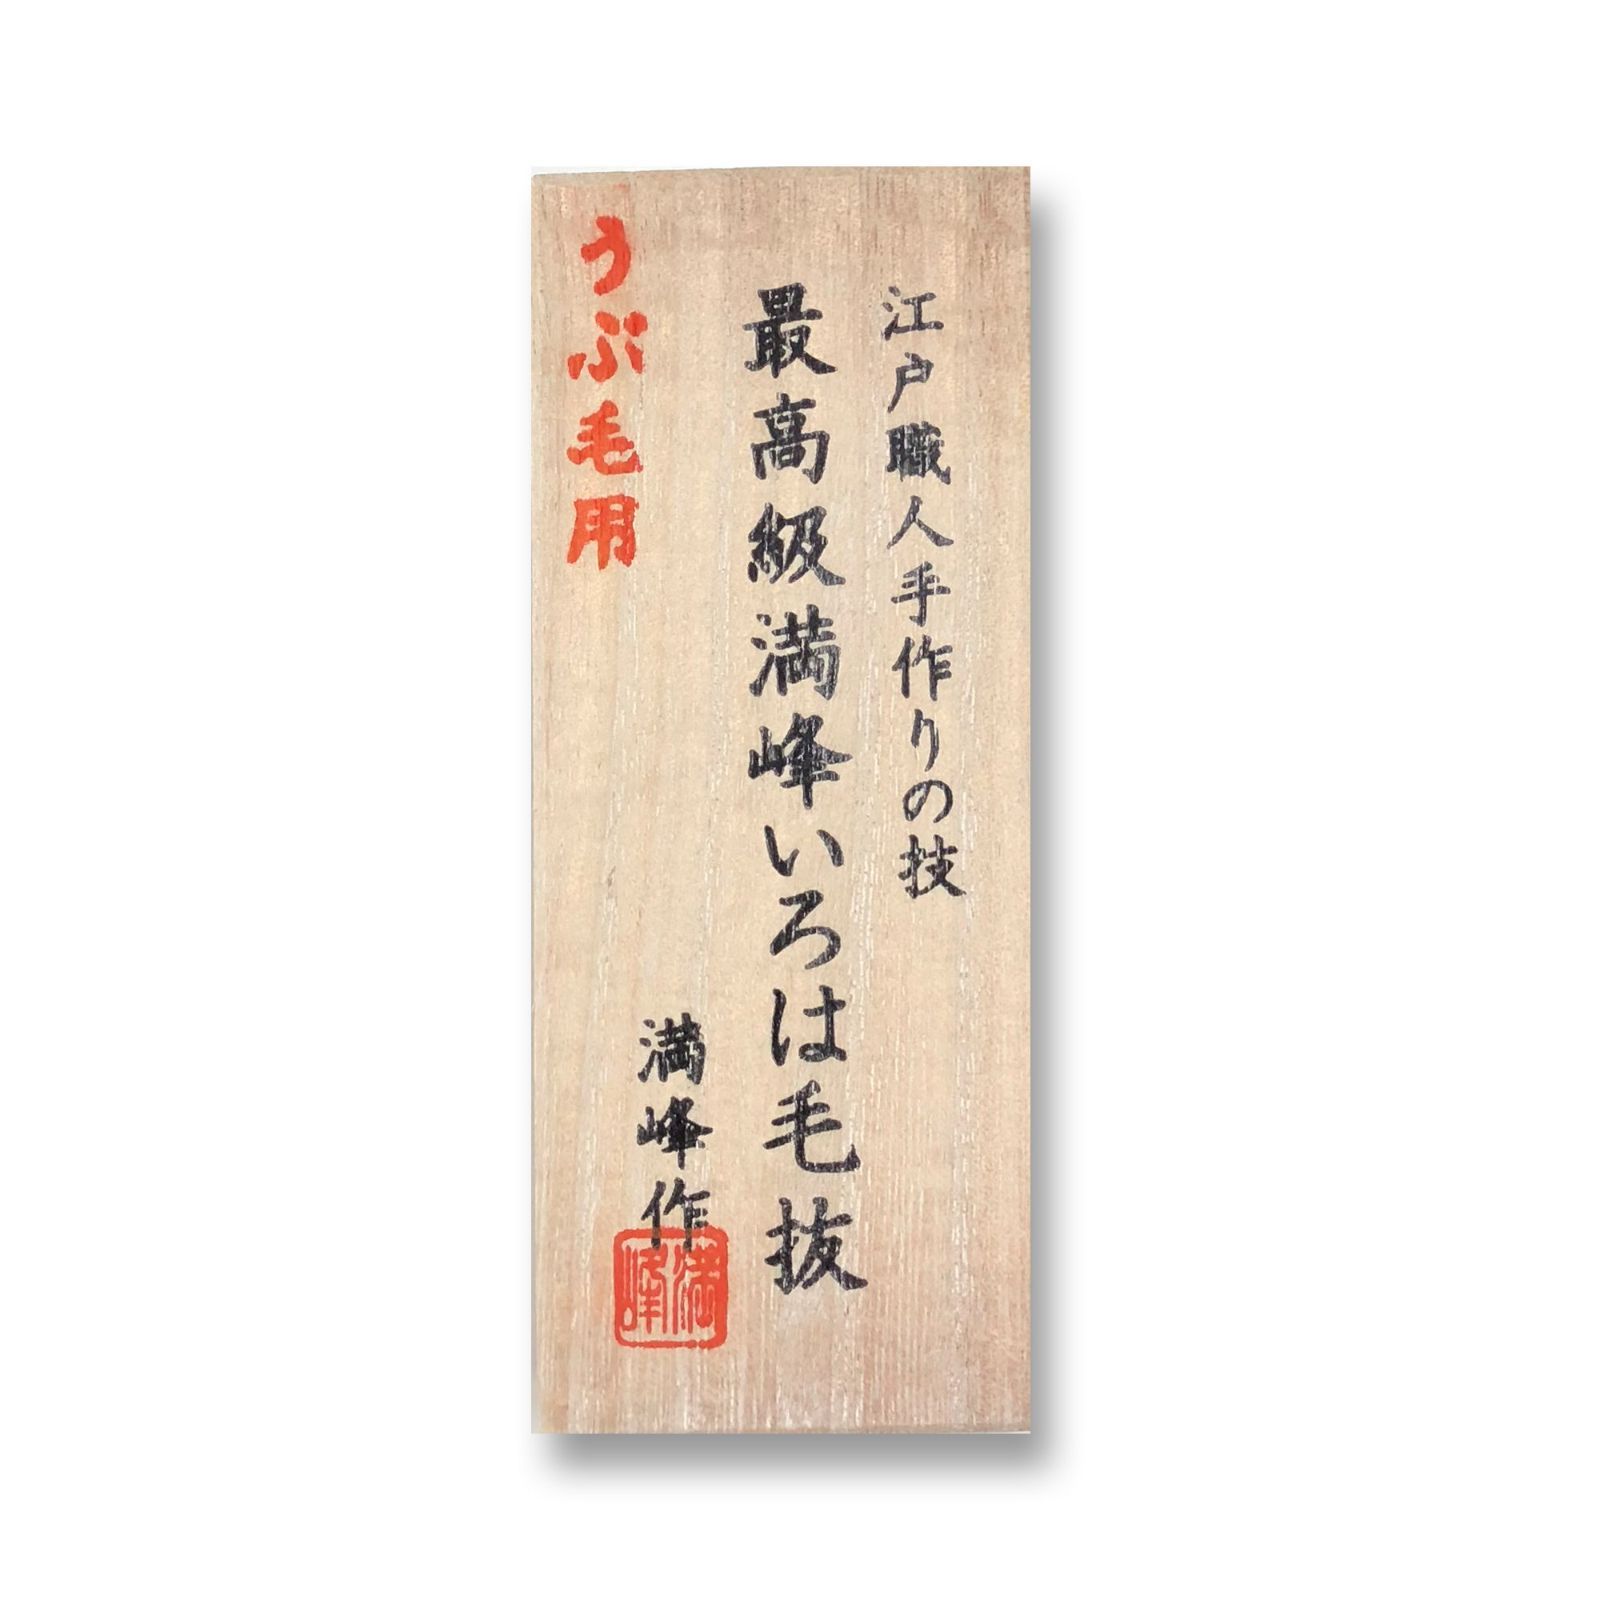 江戸職人手作りの技
最高級満峰いろは毛抜
満峰作
満峰
うぶ毛用